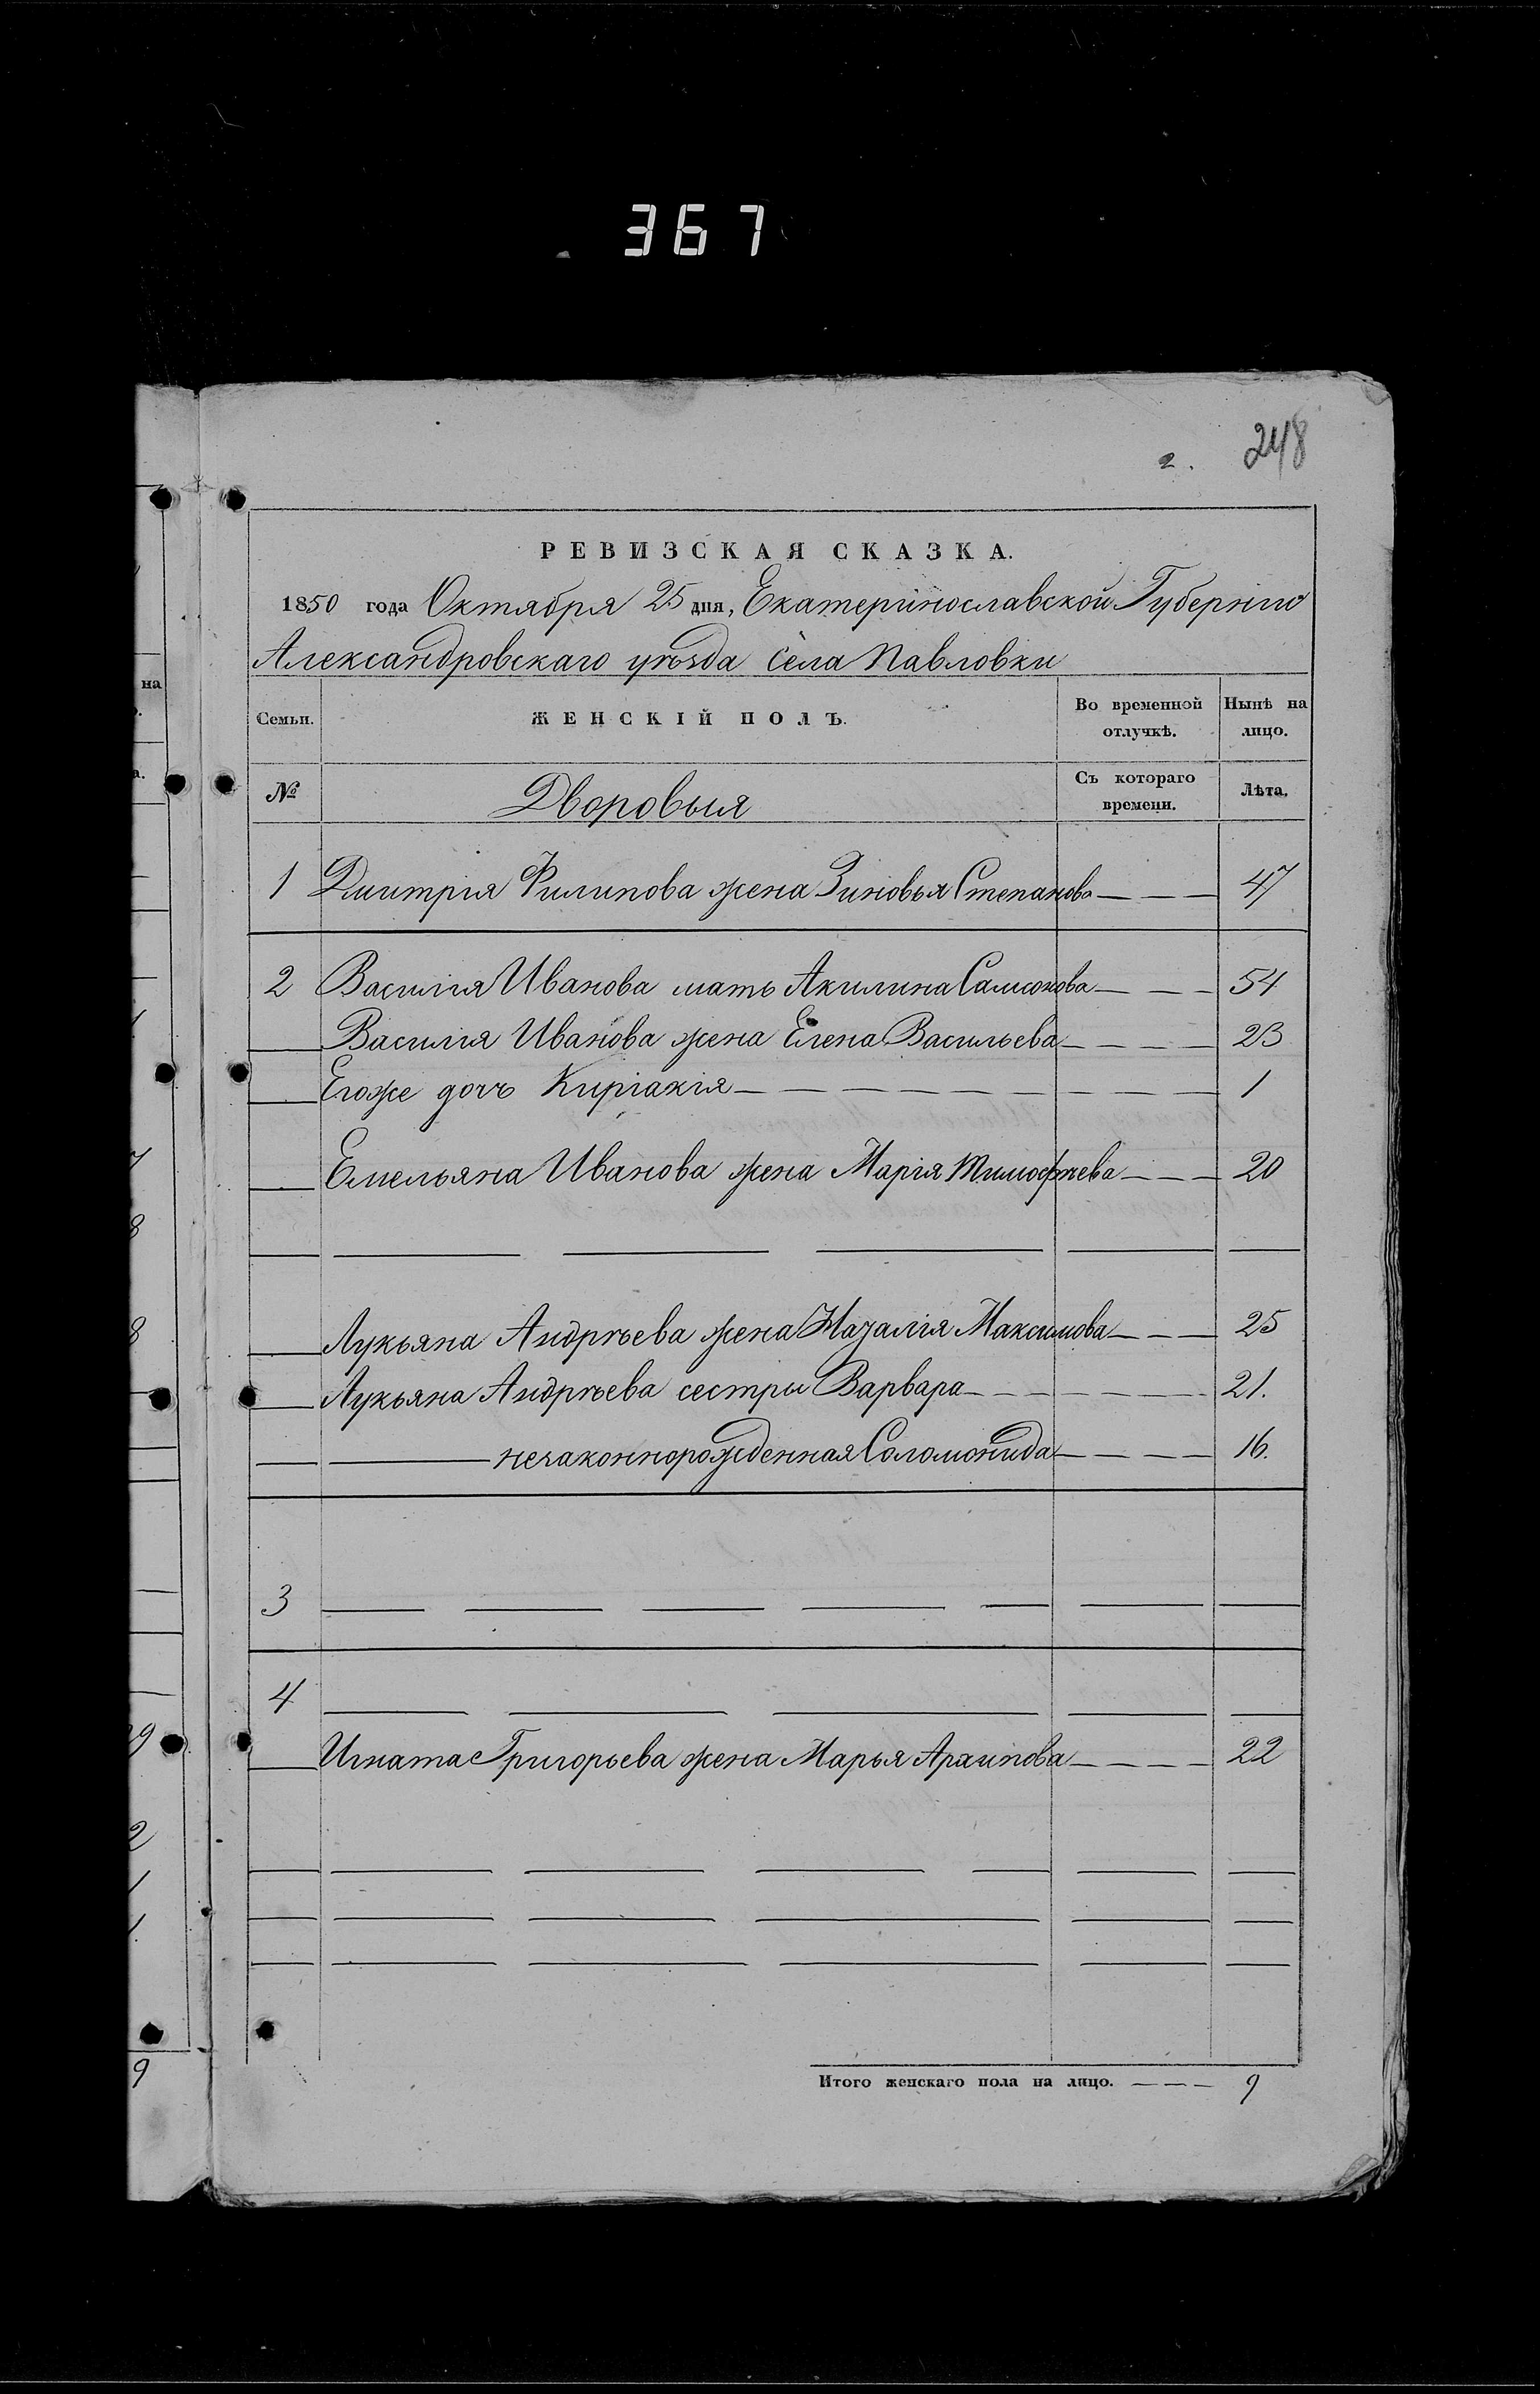 367
2. 248
РЕВИЗСКАЯ СКАЗКА.
1850 года Октября 25 дня, Екатеринославской Губерніи
Александровскаго уѣзда села Павловки
Семьи. ЖЕНСКІЙ ПОЛЪ. Во временной отлучкѣ. Нынѣ на лицо.
№ Дворовыя Съ котораго времени. Лѣта.
1 Дмитрія Филипова жена Зиновья Степанова 47
2 Василія Иванова мать Акилина Самсонова 54
Василія Иванова жена Елена Васильева 23
Егоже дочь Киріакія 1
Емельяна Иванова жена Марія Тимофѣева 20
Лукьяна Андрѣева жена Наталія Максимова 25
Лукьяна Андрѣева сестры Варвара 21.
незаконнорожденная Соломонида 16.
3
4
Игната Григорьева жена Марья Архипова 22
Итого женскаго пола на лицо. 9
на
а.
7
8
8
9
2
1
1
9